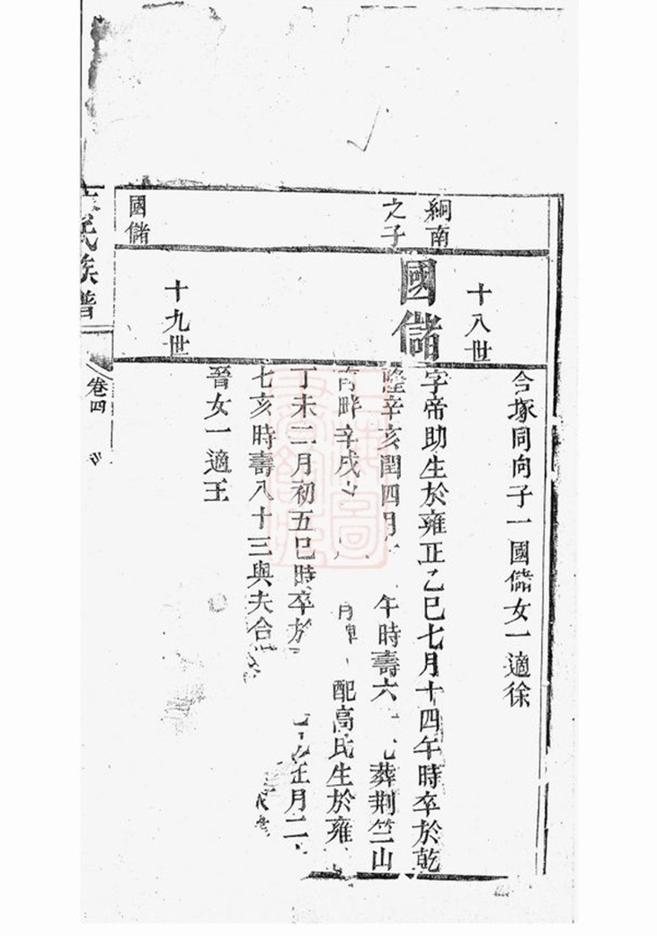 合塚同向子一國儲女一適徐
十八世
絅南
之子
國儲
字帝助生於雍正乙巳七月十四午時卒於乾
隆辛亥閏四月 午時壽六 葬荆竺山
南畔辛戌 配高氏生於雍
丁未二月初五巳時卒於 正月二
七亥時壽八十三與夫合
晉女一適王
十九世
國儲
氏族譜
卷四